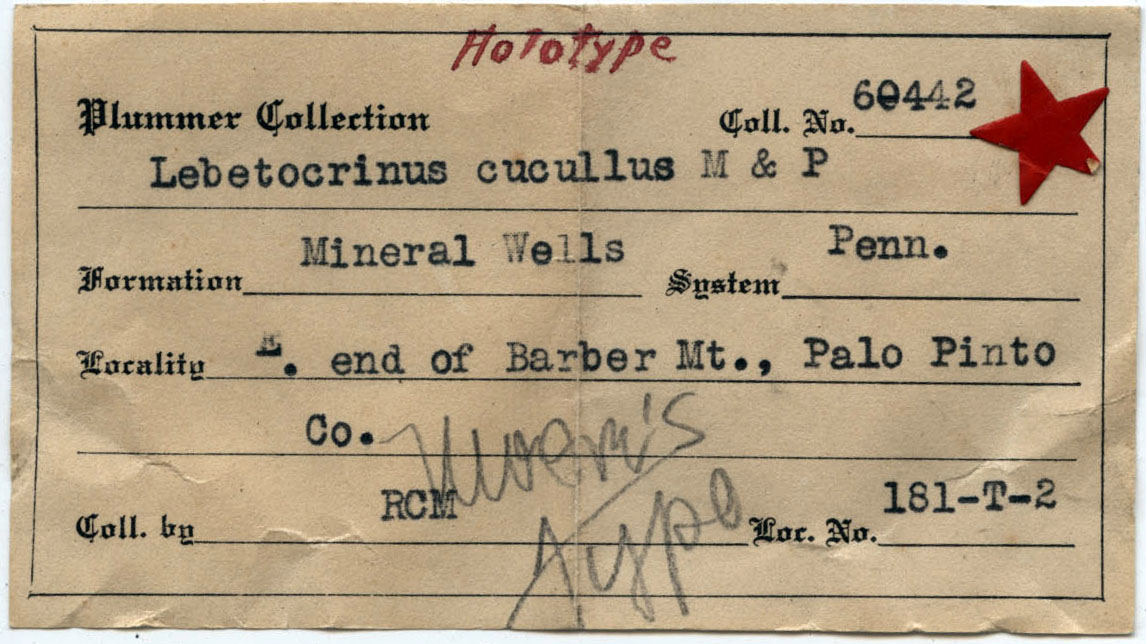 Holotype
Plummer Collection Coll. No. 60442
Lebetocrinus cucullus M & P
Formation Mineral Wells System Penn.
Locality E. end of Barber Mt., Palo Pinto
Co.
Coll. by RCM Loc. No. 181-T-2
type